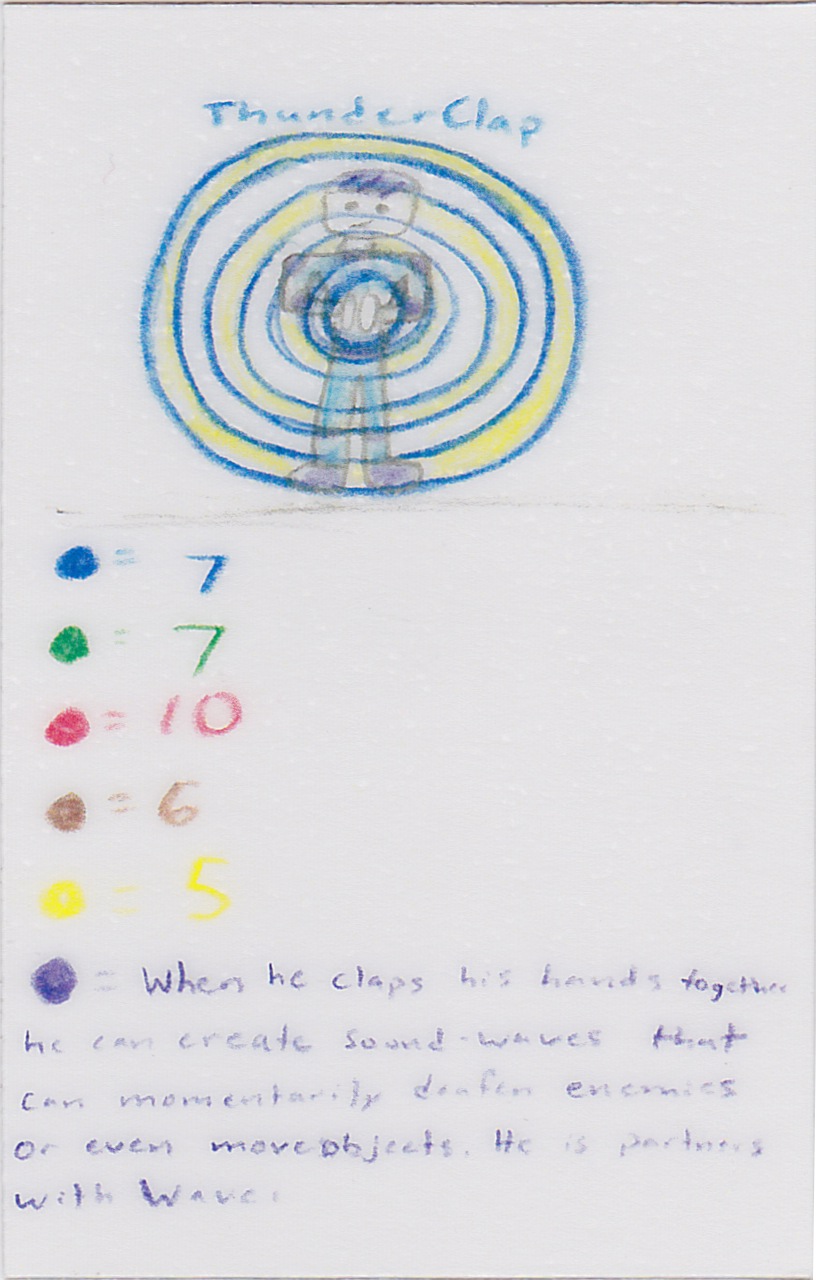 ThunderClap
= 7
= 7
= 10
= 6
= 5
= When he claps his hands together
he can create sound-waves that
can momentarily deafen enemies
or even move objects. He is partners
with Wave.